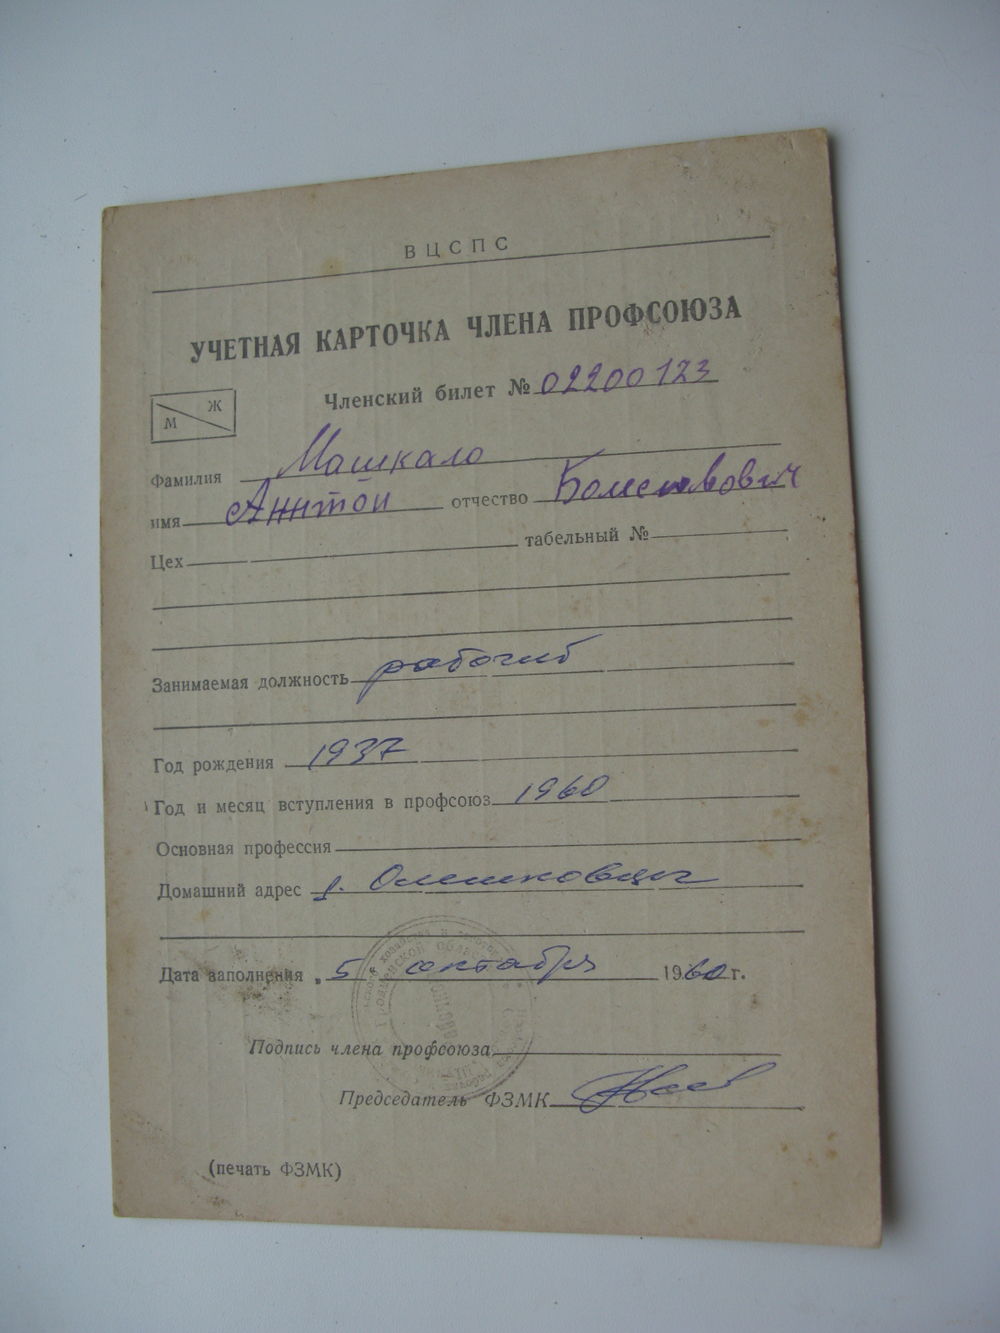 ВЦСПС
УЧЕТНАЯ КАРТОЧКА ЧЛЕНА ПРОФСОЮЗА
Членский билет № 02200123
М Ж
Фамилия Машкало
имя Антон отчество Болеславович
Цех табельный №
Занимаемая должность рабочий
Год рождения 1937
Год и месяц вступления в профсоюз 1960
Основная профессия
Домашний адрес д. Олешковцы
Дата заполнения „5 октября 1960 г.
Подпись члена профсоюза
Председатель ФЗМК
(печать ФЗМК)